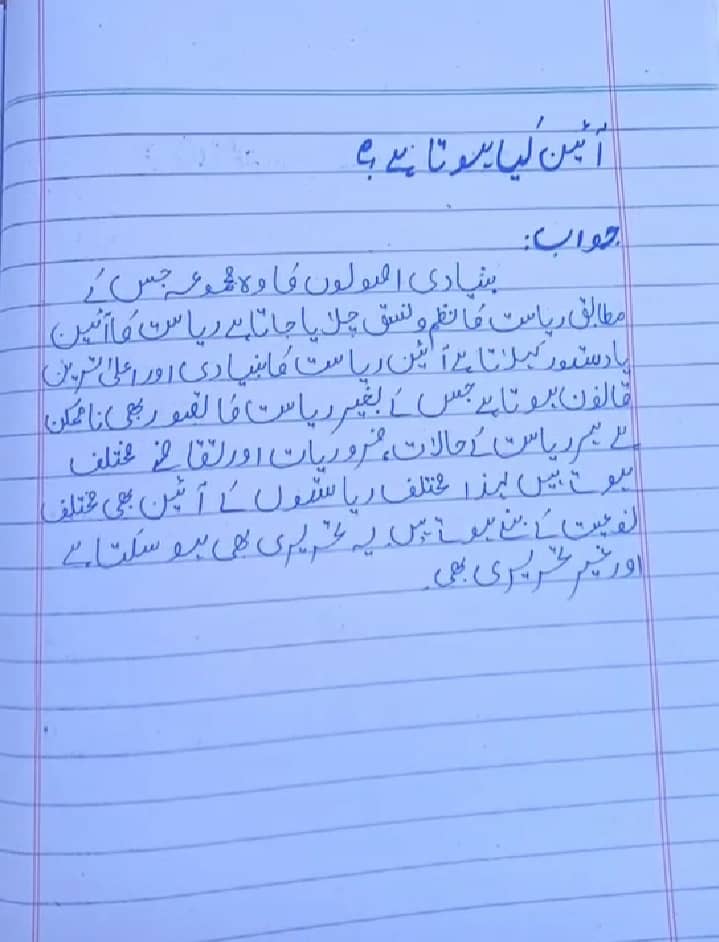 آئین کیا ہوتا ہے؟
جواب:
بنیادی اصولوں کا وہ مجموعہ جس کے
مطابق ریاست کا نظم و نسق چلایا جاتا ہے ریاست کا آئین
یا دستور کہلاتا ہے آئین ریاست کا بنیادی اور اعلیٰ ترین
قانون ہوتا ہے جس کے بغیر ریاست کا تصور بھی ناممکن
ہے ہر ریاست کے حالات، ضروریات اور تقاضے مختلف
ہوتے ہیں لہذا مختلف ریاستوں کے آئین بھی مختلف
نوعیت کے بنے ہوتے ہیں یہ تحریری بھی ہو سکتا ہے
اور غیر تحریری بھی۔